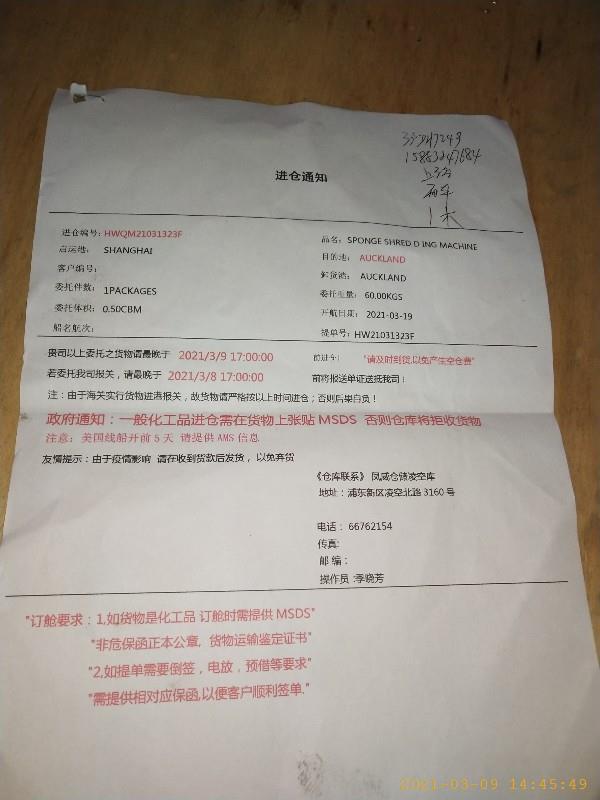 15883247684
进仓通知
进仓编号：HWQM21031323F
品名：SPONGE SHRED D ING MACHINE
启运港： SHANGHAI
目的地： AUCKLAND
客户编号：
卸货港： AUCKLAND
委托件数： 1PACKAGES
委托重量： 60.00KGS
委托体积： 0.50CBM
开航日期： 2021-03-19
船名航次：
提单号： HW21031323F
贵司以上委托之货物请最晚于 2021/3/9 17:00:00 前进仓 "请及时到货,以免产生空仓费"
若委托我司报关，请最晚于 2021/3/8 17:00:00 前将报送单证送抵我司！
注：由于海关实行货物进港报关，故货物请严格按以上时间进仓；否则后果自负！
政府通知：一般化工品进仓需在货物上张贴 MSDS 否则仓库将拒收货物
注意：美国线船开前 5 天 请提供 AMS 信息
友情提示：由于疫情影响 请在收到货款后发货，以免弃货
《仓库联系》 凤威仓储凌空库
地址：浦东新区凌空北路 3160 号
电话： 66762154
传真:
邮 编：
操作员 :季晓芳
"订舱要求：1,如货物是化工品 订舱时需提供 MSDS"
"非危保函正本公章, 货物运输鉴定证书"
"2,如提单需要倒签，电放，预借等要求"
"需提供相对应保函,以便客户顺利签单."
2021-03-09 14:45:49